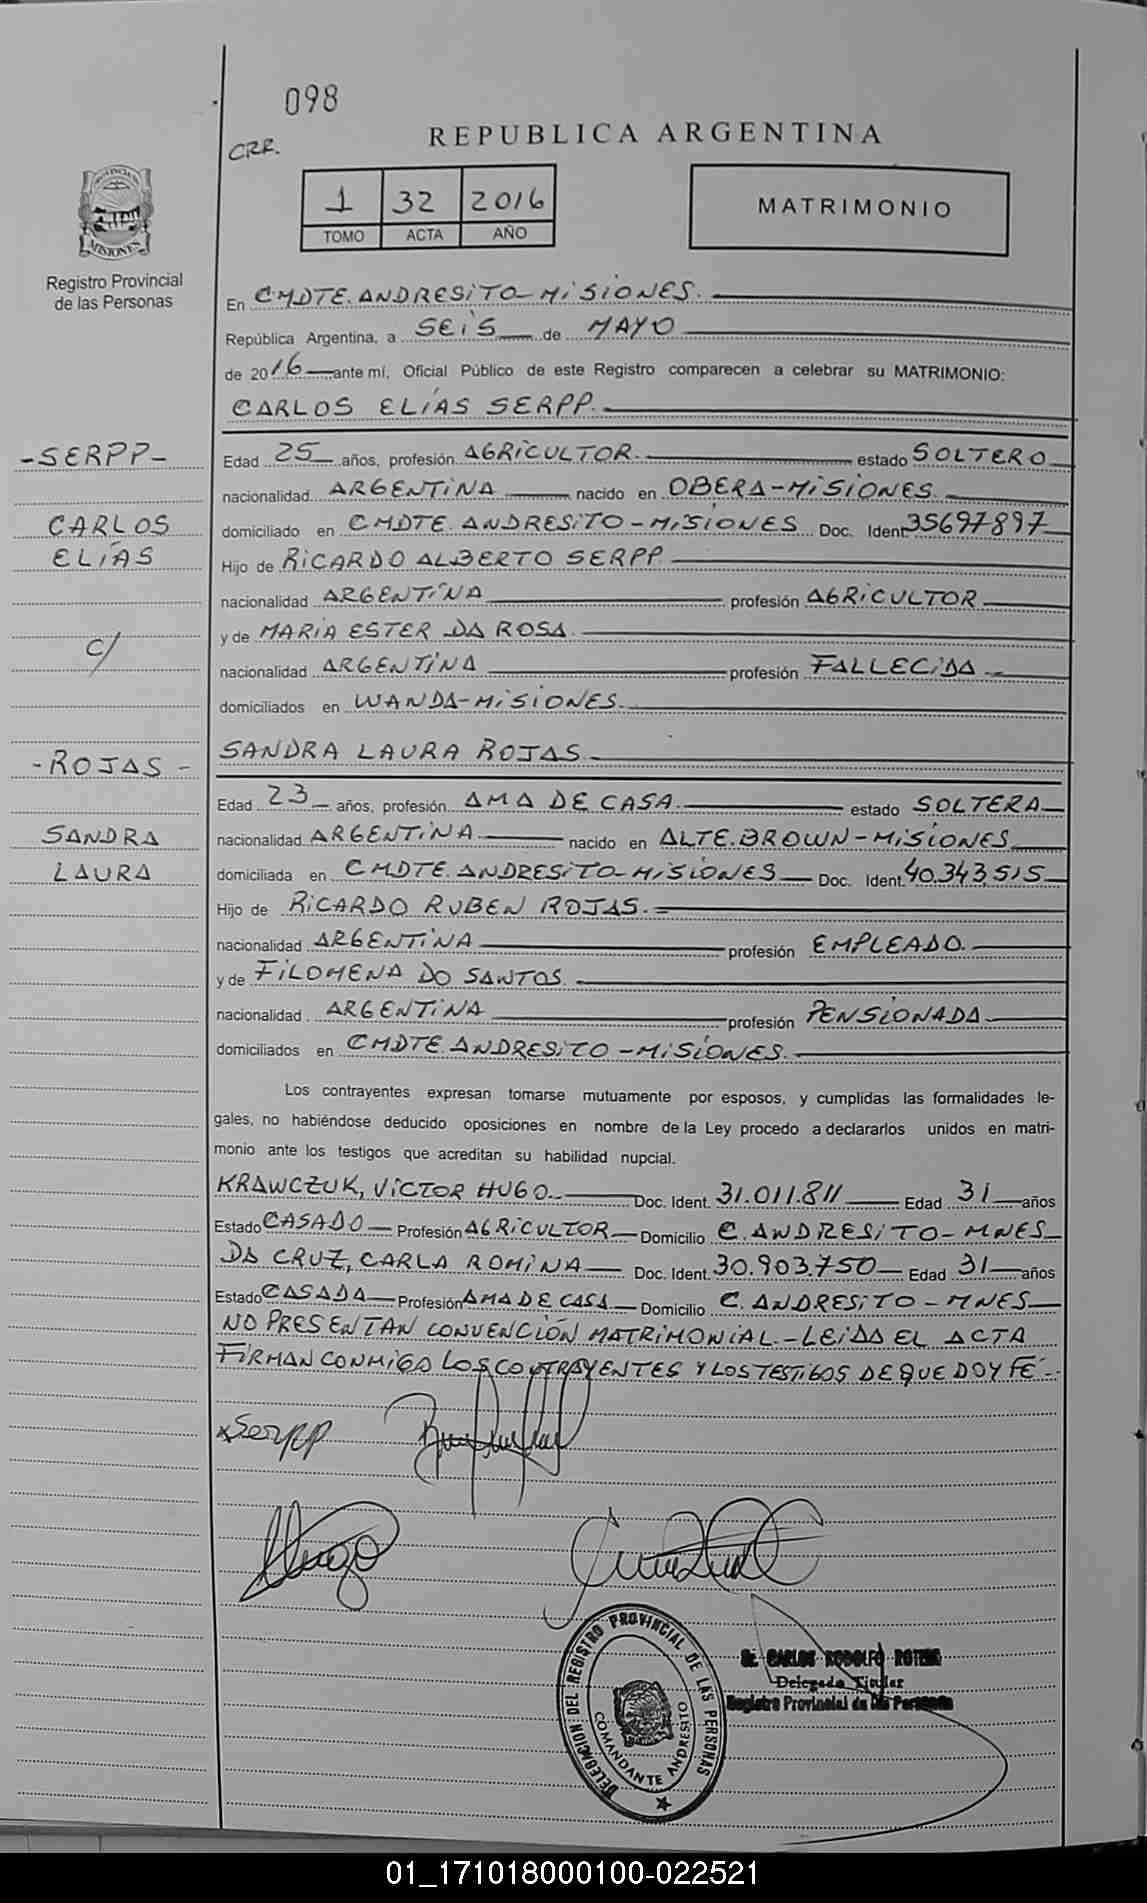 098
CRR.
REPUBLICA ARGENTINA
1 32 2016
TOMO ACTA AÑO
MATRIMONIO
PROVINCIA DE
MISIONES
Registro Provincial
de las Personas
En CMDTE. ANDRESITO-MISIONES.
República Argentina, a SEIS de MAYO
de 2016 ante mí, Oficial Público de este Registro comparecen a celebrar su MATRIMONIO:
CARLOS ELÍAS SERPP.
-SERPP-
CARLOS
ELÍAS
c/
-ROJAS-
SANDRA
LAURA
Edad 25 años, profesión AGRICULTOR. estado SOLTERO
nacionalidad ARGENTINA nacido en OBERA-MISIONES.
domiciliado en CMDTE. ANDRESITO-MISIONES Doc. Ident. 35697897
Hijo de RICARDO ALBERTO SERPP.
nacionalidad ARGENTINA profesión AGRICULTOR
y de MARIA ESTER DA ROSA.
nacionalidad ARGENTINA profesión FALLECIDA
domiciliados en WANDA-MISIONES.
SANDRA LAURA ROJAS.
Edad 23 años, profesión AMA DE CASA estado SOLTERA
nacionalidad ARGENTINA. nacido en ALTE. BROWN-MISIONES
domiciliada en CMDTE. ANDRESITO-MISIONES Doc. Ident. 40.343.515
Hijo de RICARDO RUBEN ROJAS.
nacionalidad ARGENTINA profesión EMPLEADO.
y de FILOMENA DO SANTOS.
nacionalidad ARGENTINA profesión PENSIONADA
domiciliados en CMDTE. ANDRESITO-MISIONES.
Los contrayentes expresan tomarse mutuamente por esposos, y cumplidas las formalidades le-
gales, no habiéndose deducido oposiciones en nombre de la Ley procedo a declararlos unidos en matri-
monio ante los testigos que acreditan su habilidad nupcial.
KRAWCZUK, VICTOR HUGO Doc. Ident. 31.011.811 Edad 31 años
Estado CASADO Profesión AGRICULTOR Domicilio C. ANDRESITO-MNES
DA CRUZ, CARLA ROMINA Doc. Ident. 30.903.750 Edad 31 años
Estado CASADA Profesión AMA DE CASA Domicilio C. ANDRESITO-MNES
NO PRESENTAN CONVENCIÓN MATRIMONIAL.-LEIDA EL ACTA
FIRMAN CONMIGO LOS CONTRAYENTES Y LOS TESTIGOS DE QUE DOY FÉ.-
Serpp
Hugo
DELEGACION DEL REGISTRO PROVINCIAL DE LAS PERSONAS
COMANDANTE ANDRESITO
CARLOS RODOLFO
Delegado Titular
Registro Provincial de las Personas
01_171018000100-022521